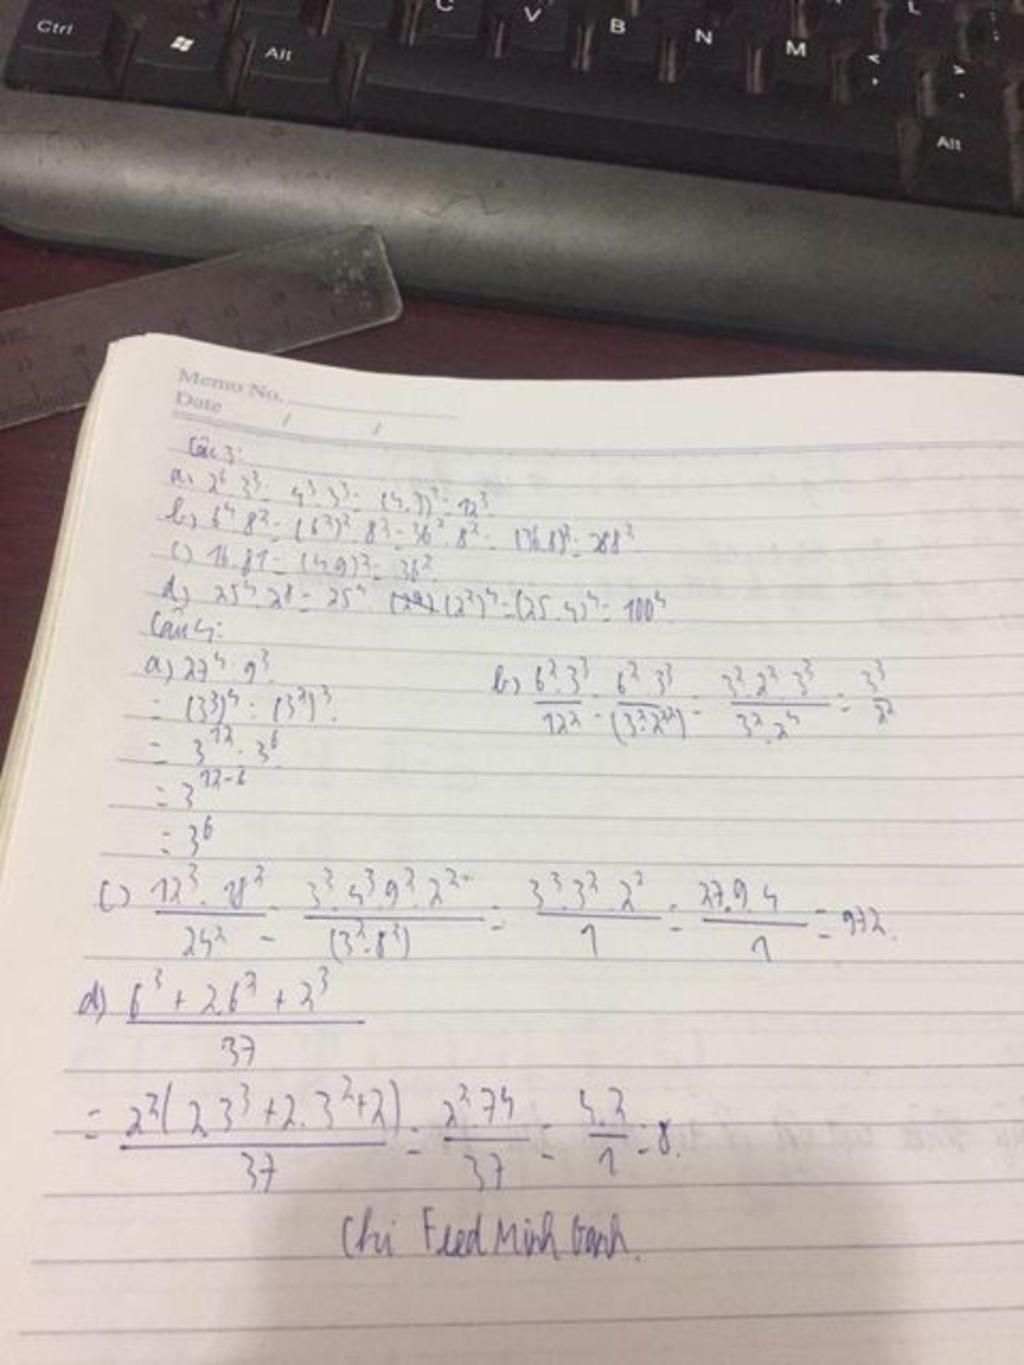 Ctrl
Alt
C V B N M L
Alt
Memo No.
Date / /
Câu 3:
a) 2⁶ 3³ = 4³ 3³ = (4.3)³ = 12³
b) 6⁴ 8² = (6²)² 8² = 36² 8² = (36.8)² = 288²
c) 16.81 = (4.9)² = 36²
d) 25⁴ 2⁸ = 25⁴ (2²)⁴ = (25.4)⁴ = 100⁴
Câu 4:
a) 27⁴ : 9³
= (3³)⁴ : (3²)³
= 3¹² : 3⁶
= 3¹²⁻⁶
= 3⁶
b) 6².3³ / 12² = 6².3³ / (3².2²²) = 3².2².3³ / 3².2⁴ = 3³ / 2²
c) 12³.18² / 24² = 3³.4³.9².2² / (3².8²) = 3³.3².2² / 1 = 27.9.4 / 1 = 972.
d) 6³ + 2.6² + 2³ / 37
= 2²(2.3³ + 2.3² + 2) / 37 = 2².74 / 37 = 4.2 / 1 = 8.
Chi Feed Minh Oanh.